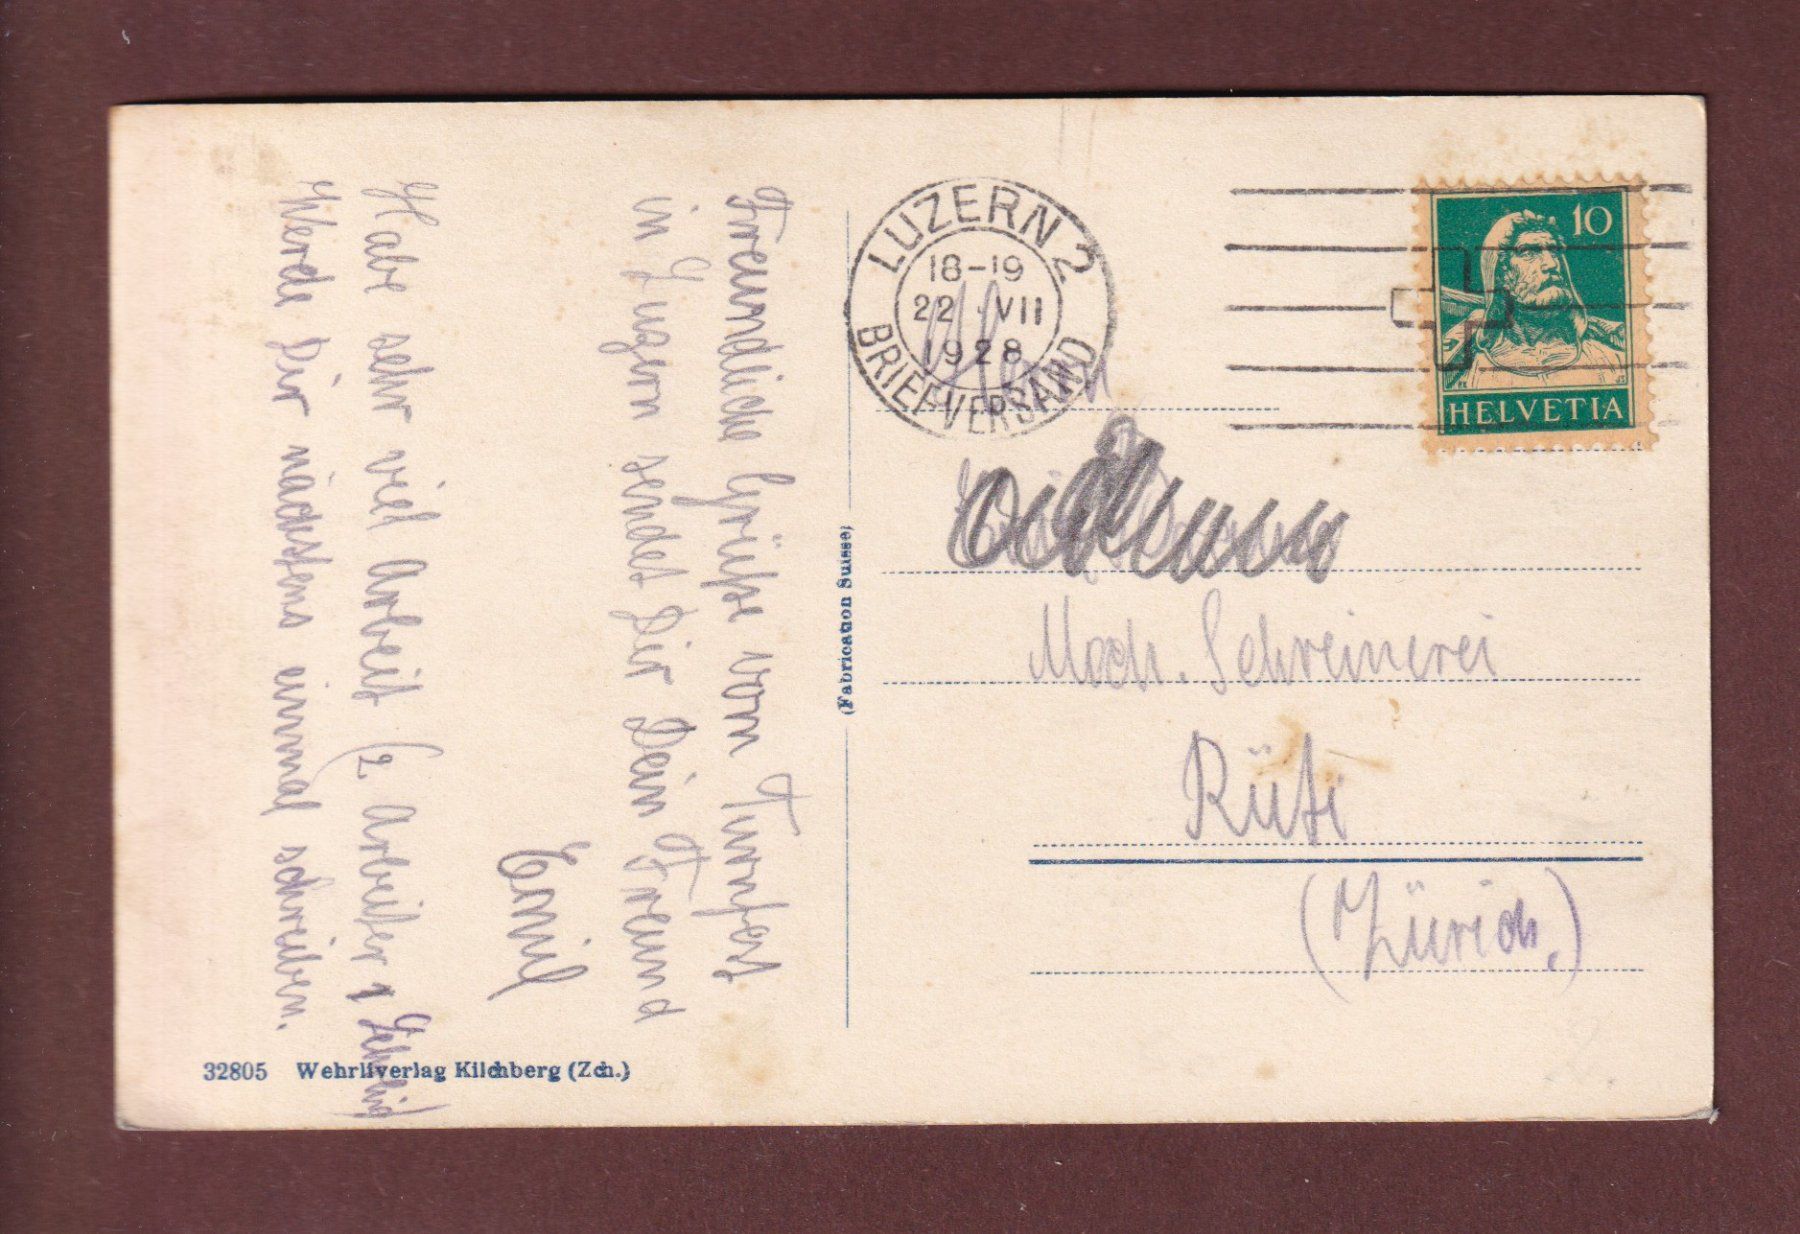 Freundliche Grüße vom Turnfest
in Luzern sendet Dir Dein Freund
Emil
Habe sehr viel Arbeit (2 Arbeiter 1 Lehrling)
Werde Dir nächstens einmal schreiben.
32805 Wehrliverlag Kilchberg (Zch.)
(Fabrication Suisse)
LUZERN 2
18-19
22 VII
1928
BRIEFVERSAND
10
HELVETIA
Mech. Schreinerei
Rüti
(Zürich.)